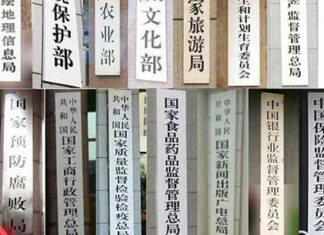 绘地理信息局
保护部
农业部
文化部
家旅游局
生和计划生育委员会
监督管理总局
国家预防腐败局
中华人民
共和国
国家工商行政管理总局
中华人民
共和国
国家质量监督检验检疫总局
国家食品药品监督管理总局
中华人民
共和国
国家新闻出版广电总局
中国银行业监督管理委员会
中国保险监督管理委员会